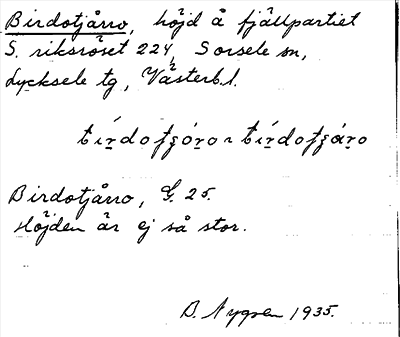 Birdotjårro, höjd å fjällpartiet
S. riksröset 224, Sorsele sn,
Lycksele tg, Västerb. l.
Birdotjårro, G. 25.
Höjden är ej så stor.
B. Nygren 1935.